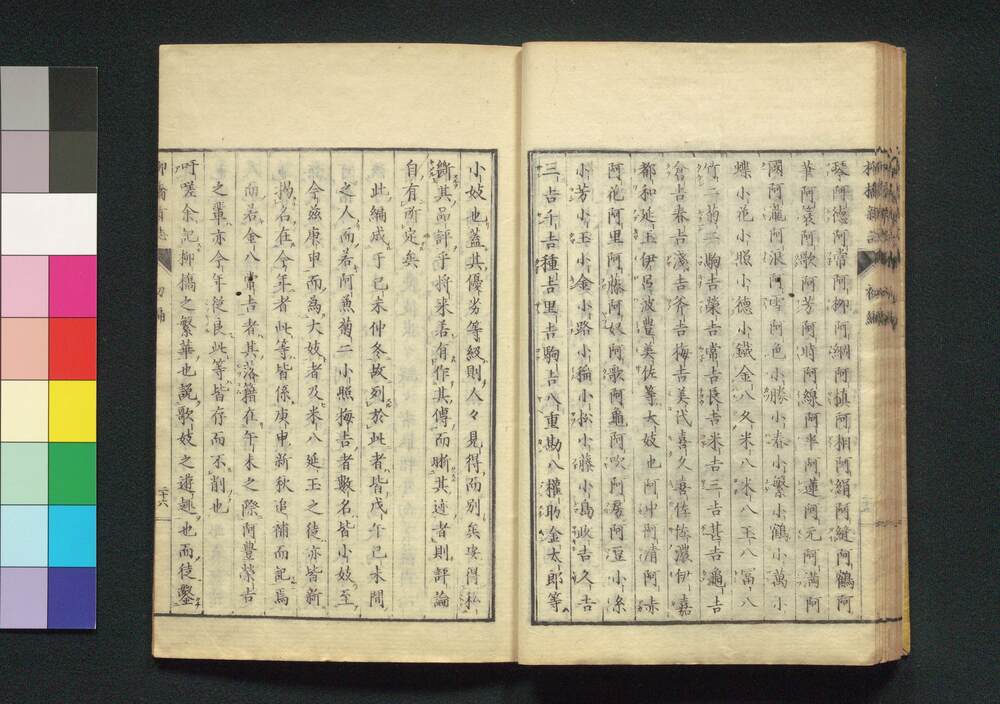 琴阿德阿常阿柳阿綱阿槙阿相阿絹阿縫阿鶴阿
華阿袞阿歌阿芳阿時阿線阿半阿蓮阿元阿満阿
國阿瀧阿浪阿雪阿色小勝小春小繁小鶴小萬小
蝶小花小照小德小鐵金八久米八米八玉八冨八
竹二菊二駒吉榮吉常吉長吉米吉三吉甚吉龜吉
倉吉春吉淺吉斧吉梅吉美代喜久喜佐佐濃伊嘉
都和延玉伊呂波豊美佐等大妓也阿仲阿清阿赤
阿花阿里阿藤阿奴阿歌阿龜阿吹阿房阿豆小糸
小芳小玉小金小路小稲小松小藤小島政吉久吉
三吉千吉種吉里吉駒吉八重勘八權助金太郎等
小妓也蓋其優劣等級則人々見得而別矣安得私
斷其品評乎將来若有作其傳而晰其迹者則評論
自有所定矣
此編成于己未仲冬故列於此者皆戊午己未間
之人而若阿魚菊二小照梅吉者數名皆小妓至
今茲庚申而為大妓者及米八延玉之徒亦皆新
揭名在今年者此等皆係庚申新秋追補而記焉
而若金八常吉者其落籍在午未之際阿豊榮吉
之輩亦今年從良此等皆存而不削也
吁嗟余記柳橋之繁華也說歌妓之遊趣也而徒鑿
柳橋新誌 初編 二十六